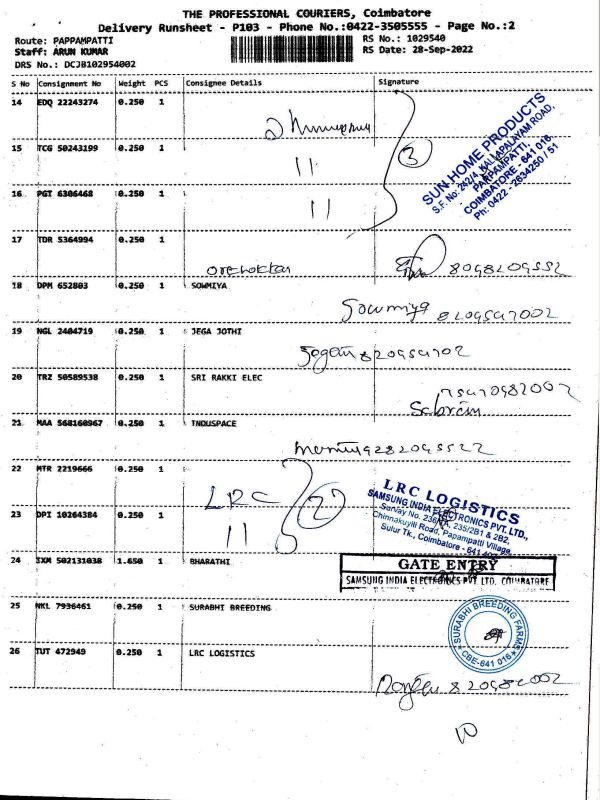 THE PROFESSIONAL COURIERS, Coimbatore
Delivery Runsheet - P103 - Phone No.:0422-3505555 - Page No.:2
Route: PAPPAMPATTI RS No.: 1029540
Staff: ARUN KUMAR RS Date: 28-Sep-2022
DRS No.: DCJB102954002
S No Consignment No Weight PCS Consignee Details Signature
14 EDQ 22243274 0.250 1
15 TCG 50243199 0.250 1
11 3
SUN HOME PRODUCTS
S.F. No: 242/4, KALLAPALAYAM ROAD,
PAPPAMPATTI,
COIMBATORE - 641 016
Ph: 0422 - 2634250 / 51
16 PGT 6306468 0.250 1
11
17 TDR 5364994 0.250 1
8098209552
18 DPM 652803 0.250 1 SOWMIYA
Sowmiya
19 NGL 2404719 0.250 1 JEGA JOTHI
20 TRZ 50589538 0.250 1 SRI RAKKI ELEC
21 MAA 568160967 0.250 1 INDUSPACE
22 MTR 2219666 0.250 1
LRC 2
23 DPI 10264384 0.250 1
11
LRC LOGISTICS
SAMSUNG INDIA ELECTRONICS PVT. LTD.,
235/2B1 & 2B2,
Chinnakuyili Road, Papampatti Village,
Sulur Tk., Coimbatore - 641
24 IXM 502131038 1.650 1 BHARATHI
GATE ENTRY
SAMSUNG INDIA ELECTRONICS PVT. LTD. COIMBATORE
25 NKL 7936461 0.250 1 SURABHI BREEDING
SURABHI BREEDING FARMS
CBE-641 016
26 TUT 472949 0.250 1 LRC LOGISTICS